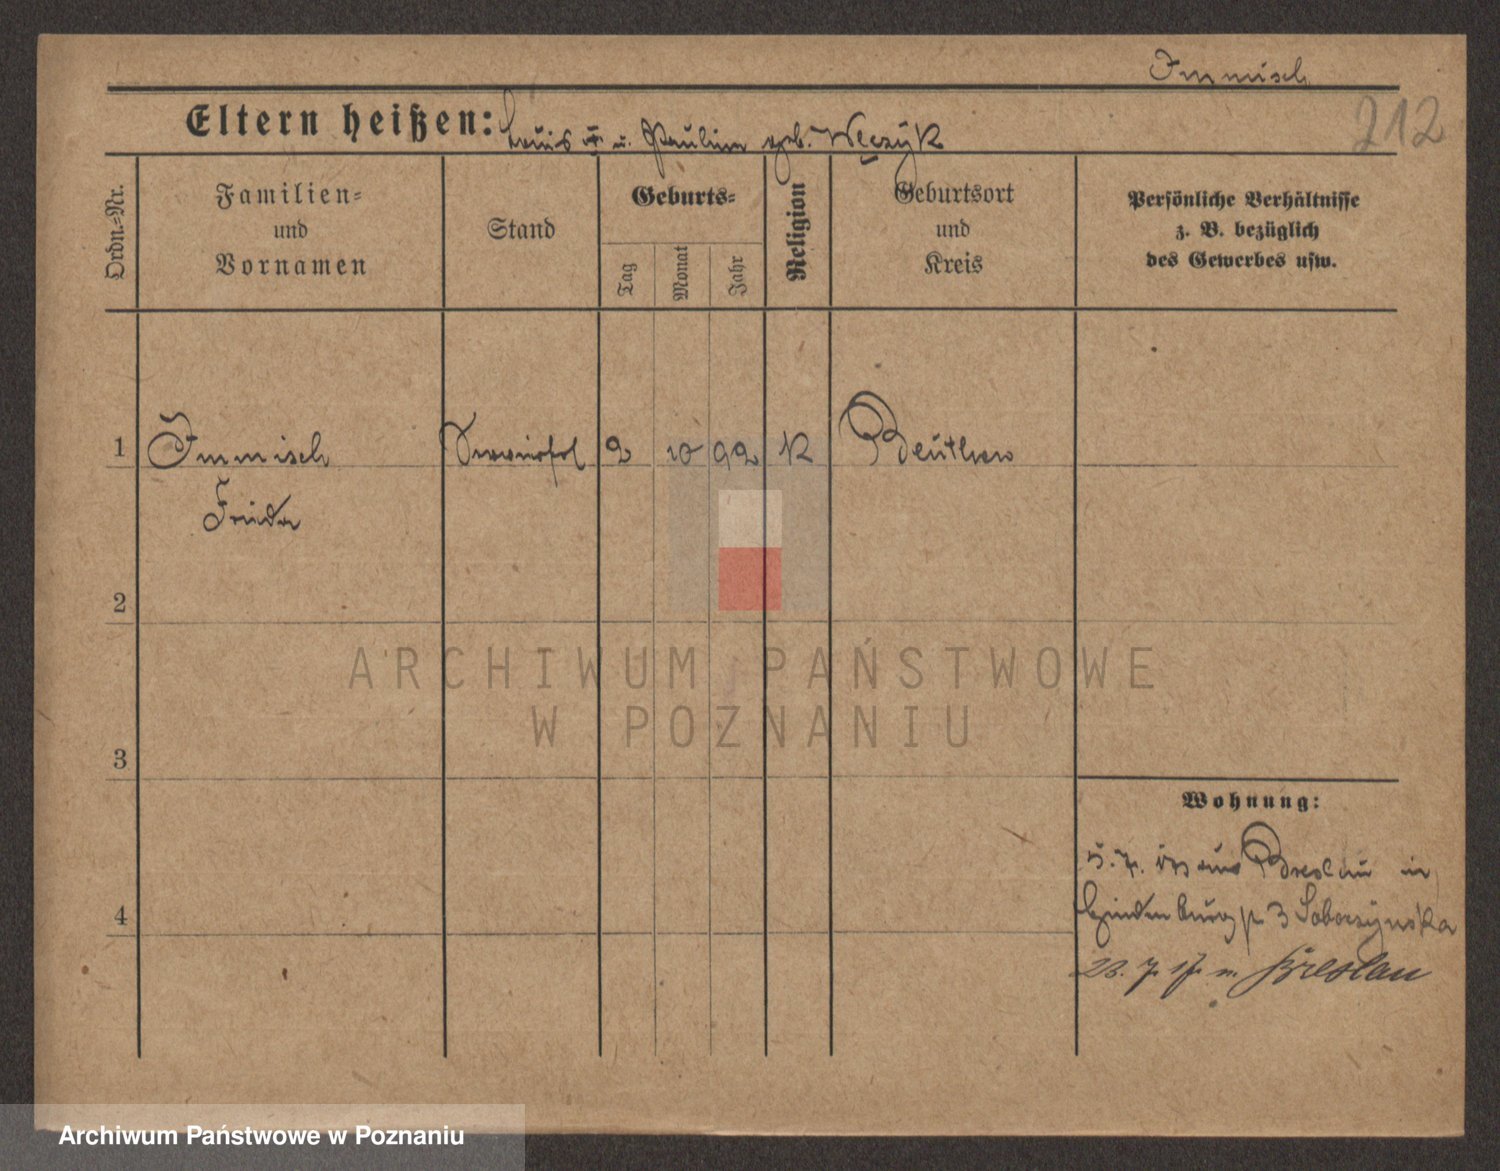 Immisch
212
Eltern heißen: Louis I. u. Paulina geb. Wleczyk
Ordn.-Nr.
Familien-
und
Vornamen
Stand
Geburts-
Tag
Monat
Jahr
Religion
Geburtsort
und
Kreis
Persönliche Verhältnisse
z. B. bezüglich
des Gewerbes usw.
1 Immisch 2 10 92 K Beuthen
Frieda
2
3
4
Wohnung:
5. 7. aus Breslau in
Hindenburg 3 Soborzynska
23. 7. 17. n. Breslau
ARCHIWUM PAŃSTWOWE
W POZNANIU
Archiwum Państwowe w Poznaniu